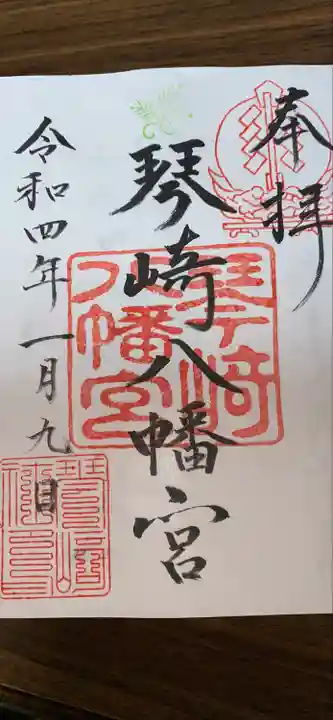 奉拝
琴崎八幡宮
琴崎
八幡宮
令和四年一月九日